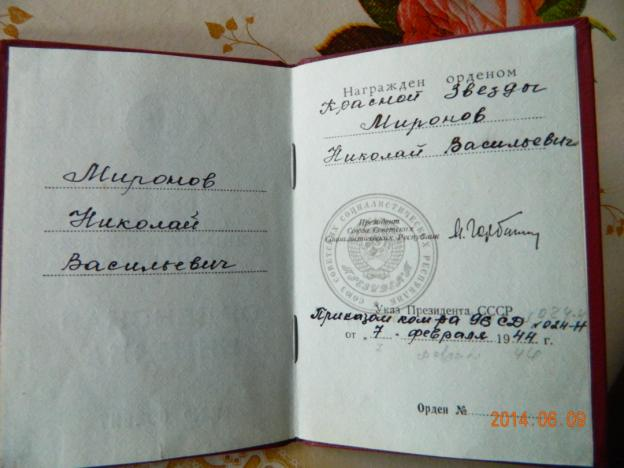 Миронов
Николай
Васильевич
Награжден орденом
Красной Звезды
Миронов
Николай Васильевич
Президент
Союза Советских
Социалистических Республик
М. Горбачев
СОЮЗ СОВЕТСКИХ СОЦИАЛИСТИЧЕСКИХ РЕСПУБЛИК
ПРЕЗИДЕНТ
Указ Президента СССР
Приказом ком-ра 98 СД №024-Н
от „7" февраля 1944 г.
Орден №
2014.06.09